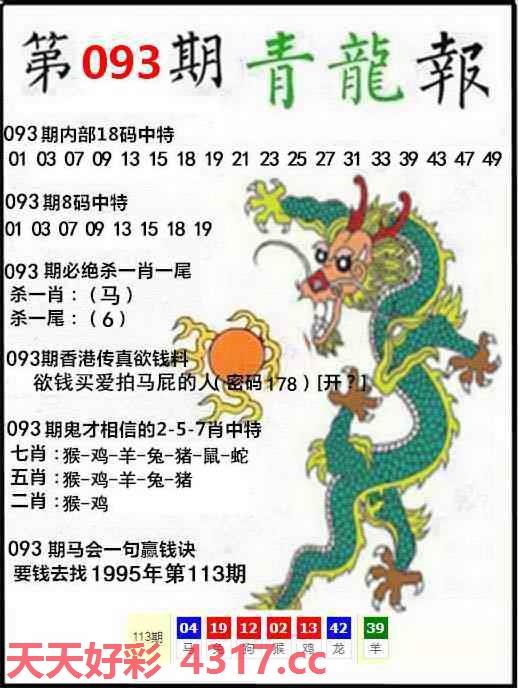 第093期 青龍報
093期内部18码中特
01 03 07 09 13 15 18 19 21 23 25 27 31 33 39 43 47 49
093期8码中特
01 03 07 09 13 15 18 19
093期必绝杀一肖一尾
杀一肖：（马）
杀一尾：（6）
093期香港传真欲钱料
欲钱买爱拍马屁的人(密码178）[开？]
093期鬼才相信的2-5-7肖中特
七肖：猴-鸡-羊-兔-猪-鼠-蛇
五肖：猴-鸡-羊-兔-猪
二肖：猴-鸡
093期马会一句赢钱诀
要钱去找1995年第113期
113期 04 19 12 02 13 42 39
马 兔 狗 猴 鸡 龙 羊
天天好彩 4317.cc